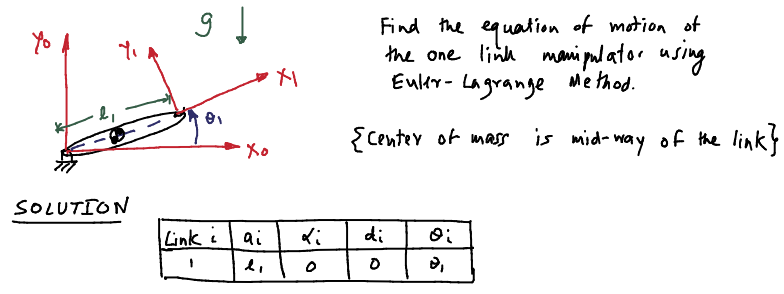 Y0
g
Y1
X1
l1
θ1
X0
Find the equation of motion of
the one link manipulator using
Euler-Lagrange Method.
{Center of mass is mid-way of the link}
SOLUTION
Link i ai αi di θi
1 l1 0 0 θ1